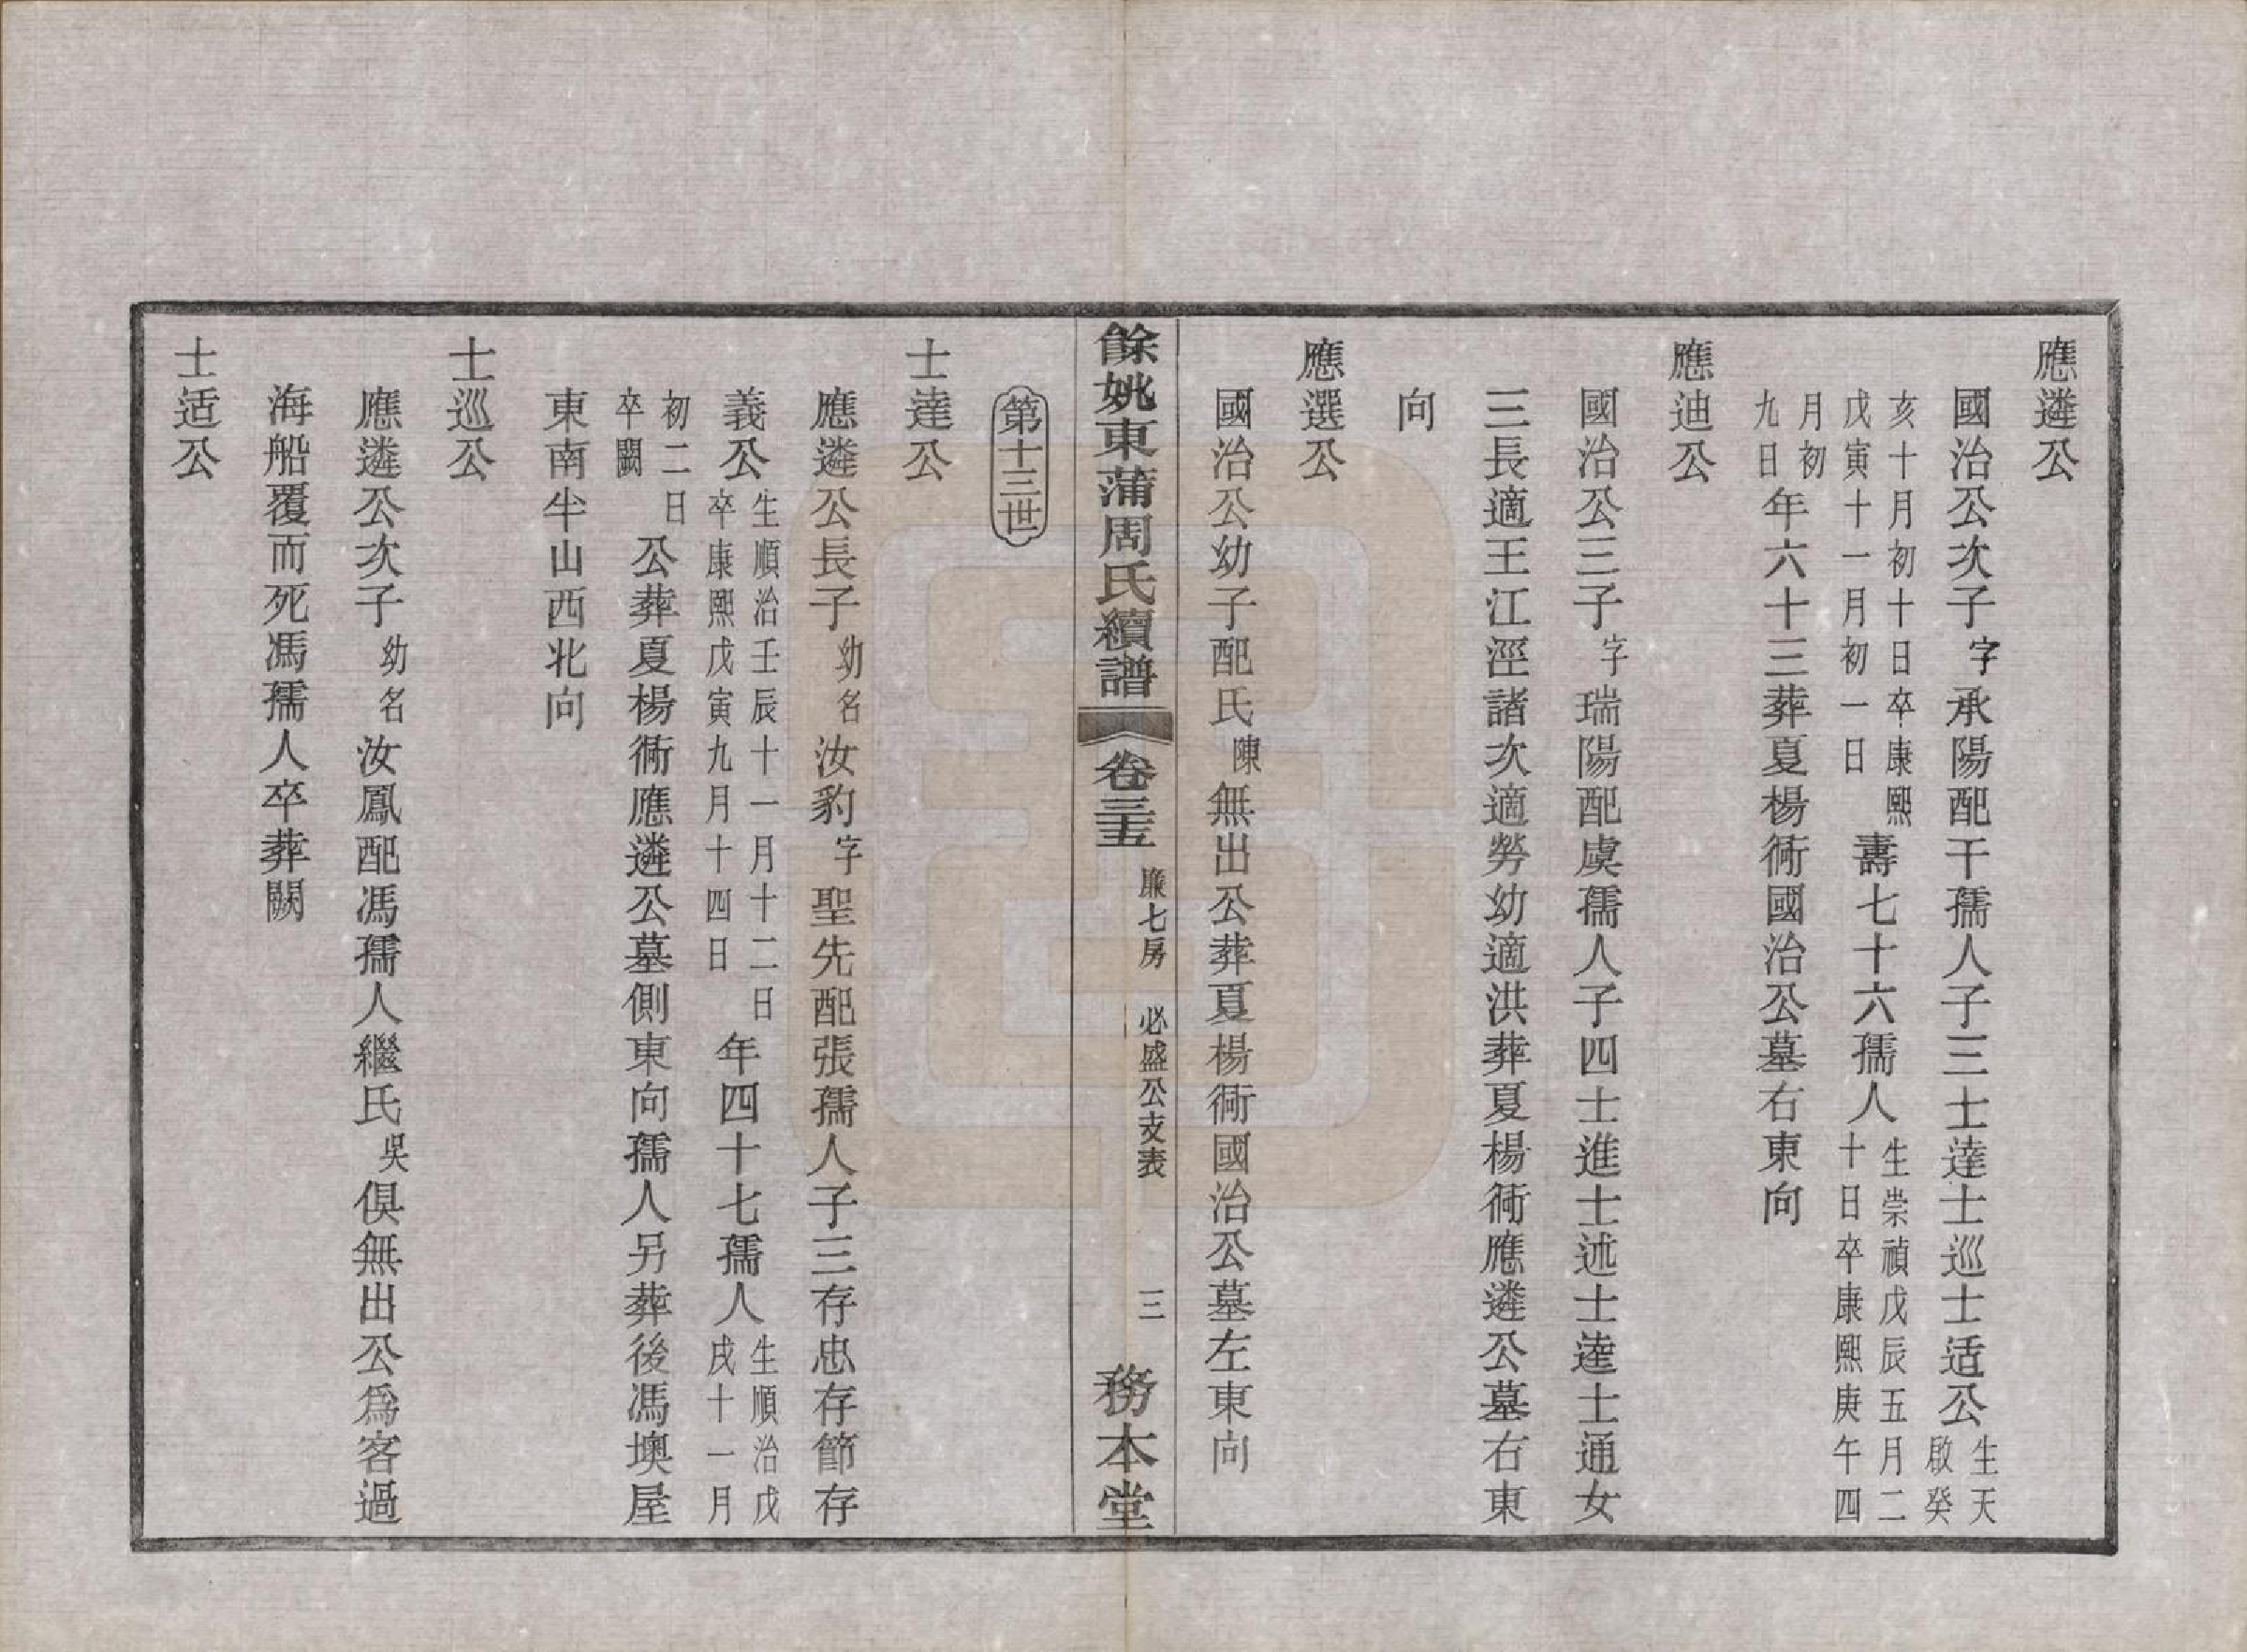 應遴公
國治公次子字承陽配干孺人子三士達士巡士适公生天啟癸
亥十月初十日卒康熙戊寅十一月初一日壽七十六孺人生崇禎戊辰五月二十日卒康熙庚午四
月初九日年六十三葬夏楊衕國治公墓右東向
應迪公
國治公三子字瑞陽配虞孺人子四士進士述士逵士通女
三長適王江涇諸次適勞幼適洪葬夏楊衕應遴公墓右東
向
應選公
國治公幼子配氏陳無出公葬夏楊衕國治公墓左東向
餘姚東蒲周氏續譜 卷三十五 廉七房 必盛公支表 三 務本堂
第十三世
士達公
應遴公長子幼名汝豹字聖先配張孺人子三存忠存節存
義公生順治壬辰十一月十二日卒康熙戊寅九月十四日年四十七孺人生順治戊戌十一月
初二日卒闕公葬夏楊衕應遴公墓側東向孺人另葬後馮墺屋
東南半山西北向
士巡公
應遴公次子幼名汝鳳配馮孺人繼氏吳俱無出公爲客過
海船覆而死馮孺人卒葬闕
士适公